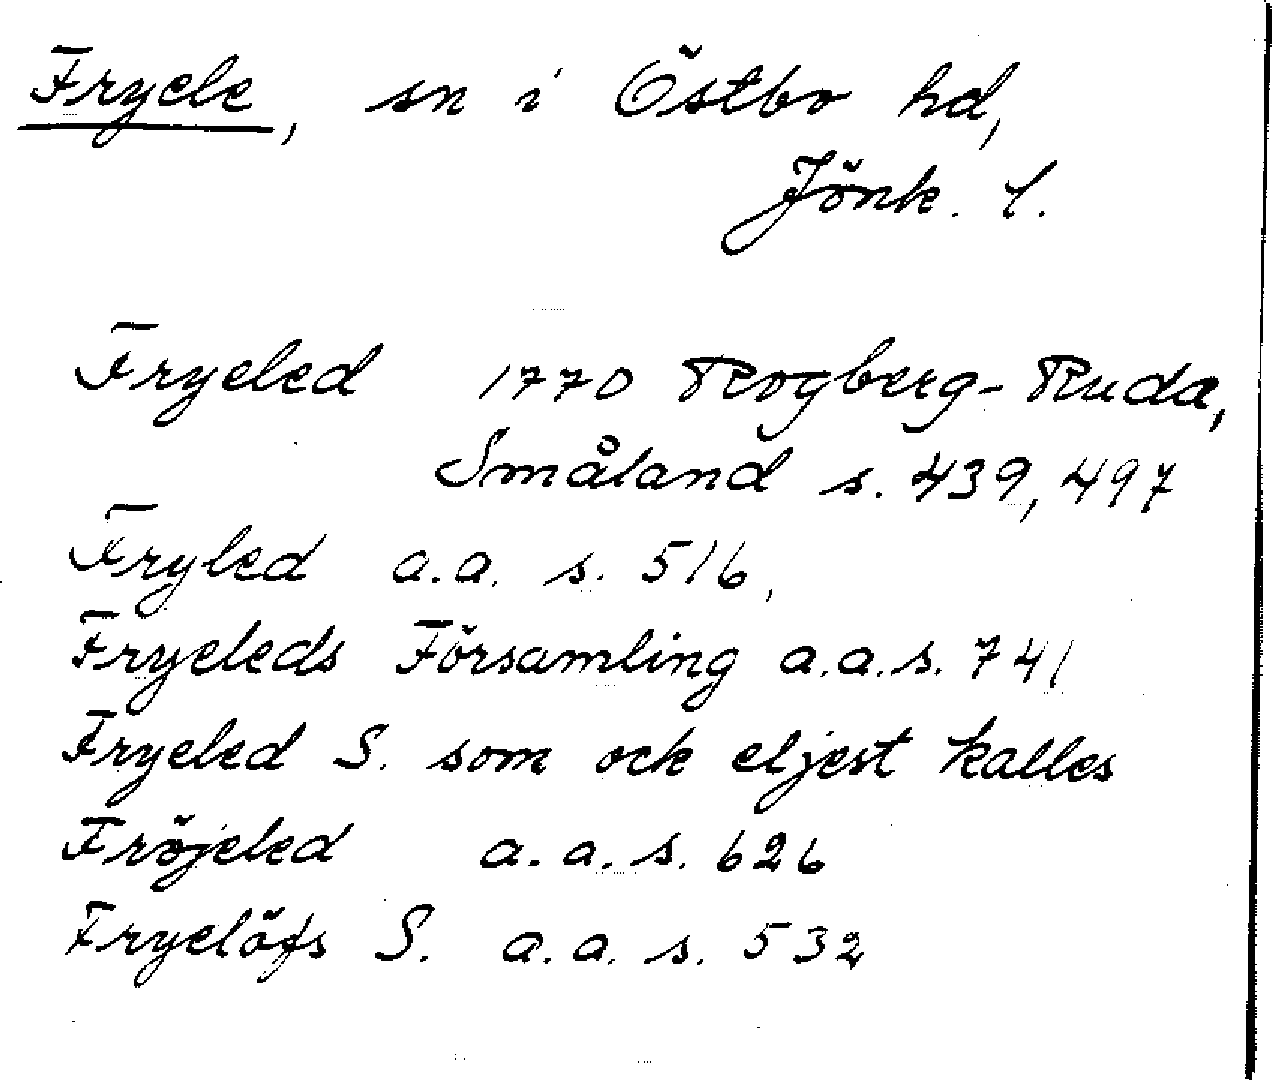 Fryele, sn i Östbo hd,
Jönk. l.
Fryeled 1770 Rogberg-Ruda,
Småland s. 439, 497
Fryled a.a. s. 516,
Fryeleds Församling a.a.s. 741
Fryeled S. som ock eljest kalles
Fröjeled a.a.s. 626
Fryelöfs S. a.a.s. 532